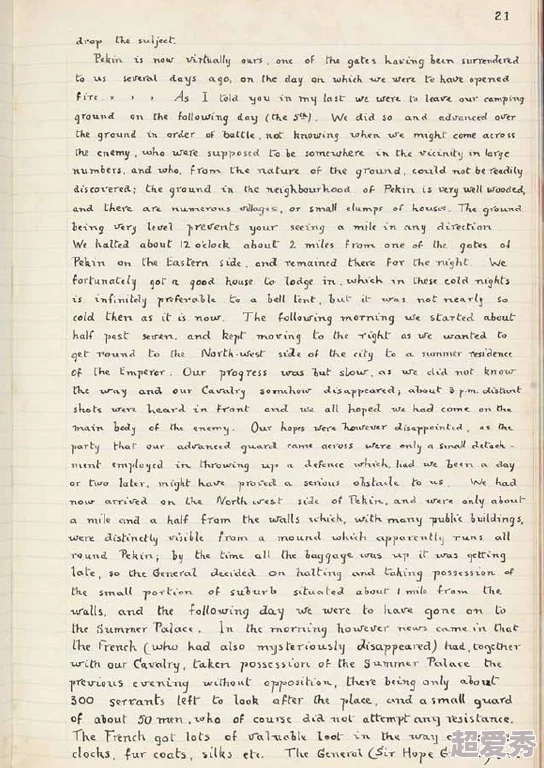 21
drop the subject.
Pekin is now virtually ours, one of the gates having been surrendered
to us several days ago, on the day on which we were to have opened
fire. . . . As I told you in my last we were to leave our camping
ground on the following day (the 5th). We did so and advanced over
the ground in order of battle, not knowing when we might come across
the enemy, who were supposed to be somewhere in the vicinity in large
numbers, and who, from the nature of the ground, could not be readily
discovered; the ground in the neighbourhood of Pekin is very well wooded,
and there are numerous villages, or small clumps of houses. The ground
being very level prevents your seeing a mile in any direction
We halted about 12 o'clock about 2 miles from one of the gates of
Pekin on the Eastern side, and remained there for the night. We
fortunately got a good house to lodge in, which in these cold nights
is infinitely preferable to a bell tent, but it was not nearly so
cold then as it is now. The following morning we started about
half past seven, and kept moving to the right as we wanted to
get round to the North-west side of the city to a summer residence
of the Emperor. Our progress was but slow, as we did not know
the way and our Cavalry somehow disappeared; about 3 p.m. distant
shots were heard in front and we all hoped we had come on the
main body of the enemy. Our hopes were however disappointed, as the
party that our advanced guard came across were only a small detach-
ment employed in throwing up a defence which, had we been a day
or two later, might have proved a serious obstacle to us. We had
now arrived on the North west side of Pekin, and were only about
a mile and a half from the walls which, with many public buildings,
were distinctly visible from a mound which apparently runs all
round Pekin; by the time all the baggage was up it was getting
late, so the General decided on halting and taking possession of
the small portion of suburb situated about 1 mile from the
walls, and the following day we were to have gone on to
the Summer Palace. In the morning however news came in that
the French (who had also mysteriously disappeared) had, together
with our Cavalry, taken possession of the Summer Palace the
previous evening without opposition, there being only about
300 servants left to look after the place, and a small guard
of about 50 men, who of course did not attempt any resistance.
The French got lots of valuable loot in the way
clocks, fur coats, silks etc. The General (Sir Hope
超爱秀